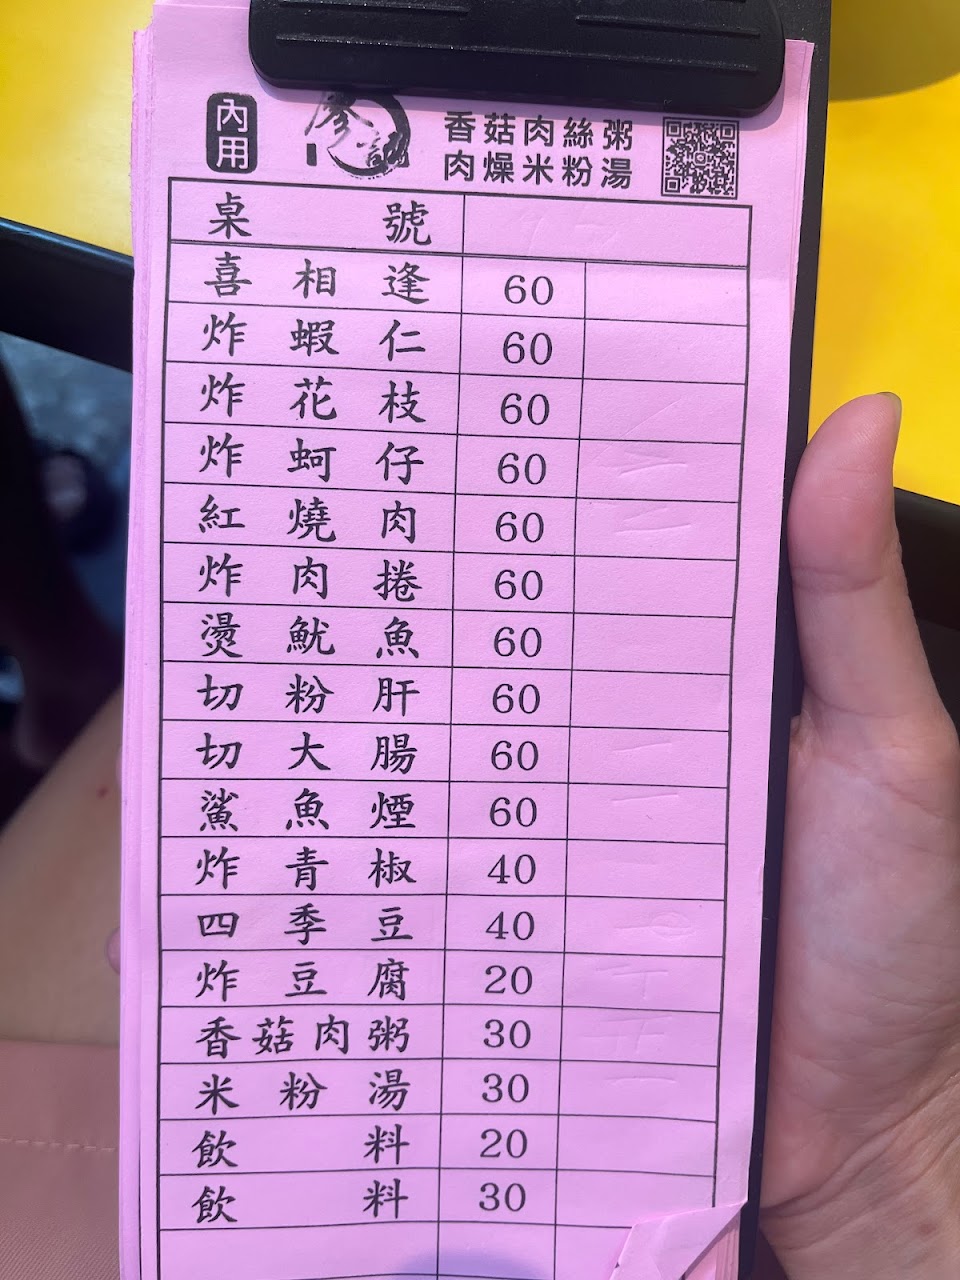 內用
廖記
香菇肉絲粥
肉燥米粉湯
桌號
喜相逢 60
炸蝦仁 60
炸花枝 60
炸蚵仔 60
紅燒肉 60
炸肉捲 60
燙魷魚 60
切粉肝 60
切大腸 60
鯊魚煙 60
炸青椒 40
四季豆 40
炸豆腐 20
香菇肉粥 30
米粉湯 30
飲料 20
飲料 30